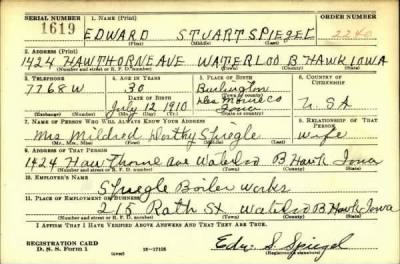 SERIAL NUMBER 1. NAME (Print) ORDER NUMBER
1619 EDWARD STUART SPIEGEL 2240
(First) (Middle) (Last)
2. ADDRESS (Print)
1424 HAWTHORNE AVE WATERLOO B HAWK IOWA
(Number and street or R. F. D. number) (Town) (County) (State)
3. TELEPHONE 4. AGE IN YEARS 5. PLACE OF BIRTH 6. COUNTRY OF CITIZENSHIP
7768W 30 Burlington
DATE OF BIRTH Des Moines Co
July 12 1910 Iowa U.SA
(Exchange) (Number) (Mo.) (Day) (Yr.) (State or country)
7. NAME OF PERSON WHO WILL ALWAYS KNOW YOUR ADDRESS 8. RELATIONSHIP OF THAT PERSON
Mrs Mildred Dorthy Spiegle wife
(Mr., Mrs., Miss) (First) (Middle) (Last)
9. ADDRESS OF THAT PERSON
1424 Hawthorne ave Waterloo B Hawk Iowa
(Number and street or R. F. D. number) (Town) (County) (State)
10. EMPLOYER'S NAME
Spiegle Boiler Works
11. PLACE OF EMPLOYMENT OR BUSINESS
215 Rath St Waterloo B Hawk Iowa
(Number and street or R. F. D. number) (Town) (County) (State)
I AFFIRM THAT I HAVE VERIFIED ABOVE ANSWERS AND THAT THEY ARE TRUE.
REGISTRATION CARD
D. S. S. Form 1 (over) 16—17105 Edw. S. Spiegel
(Registrant's signature)